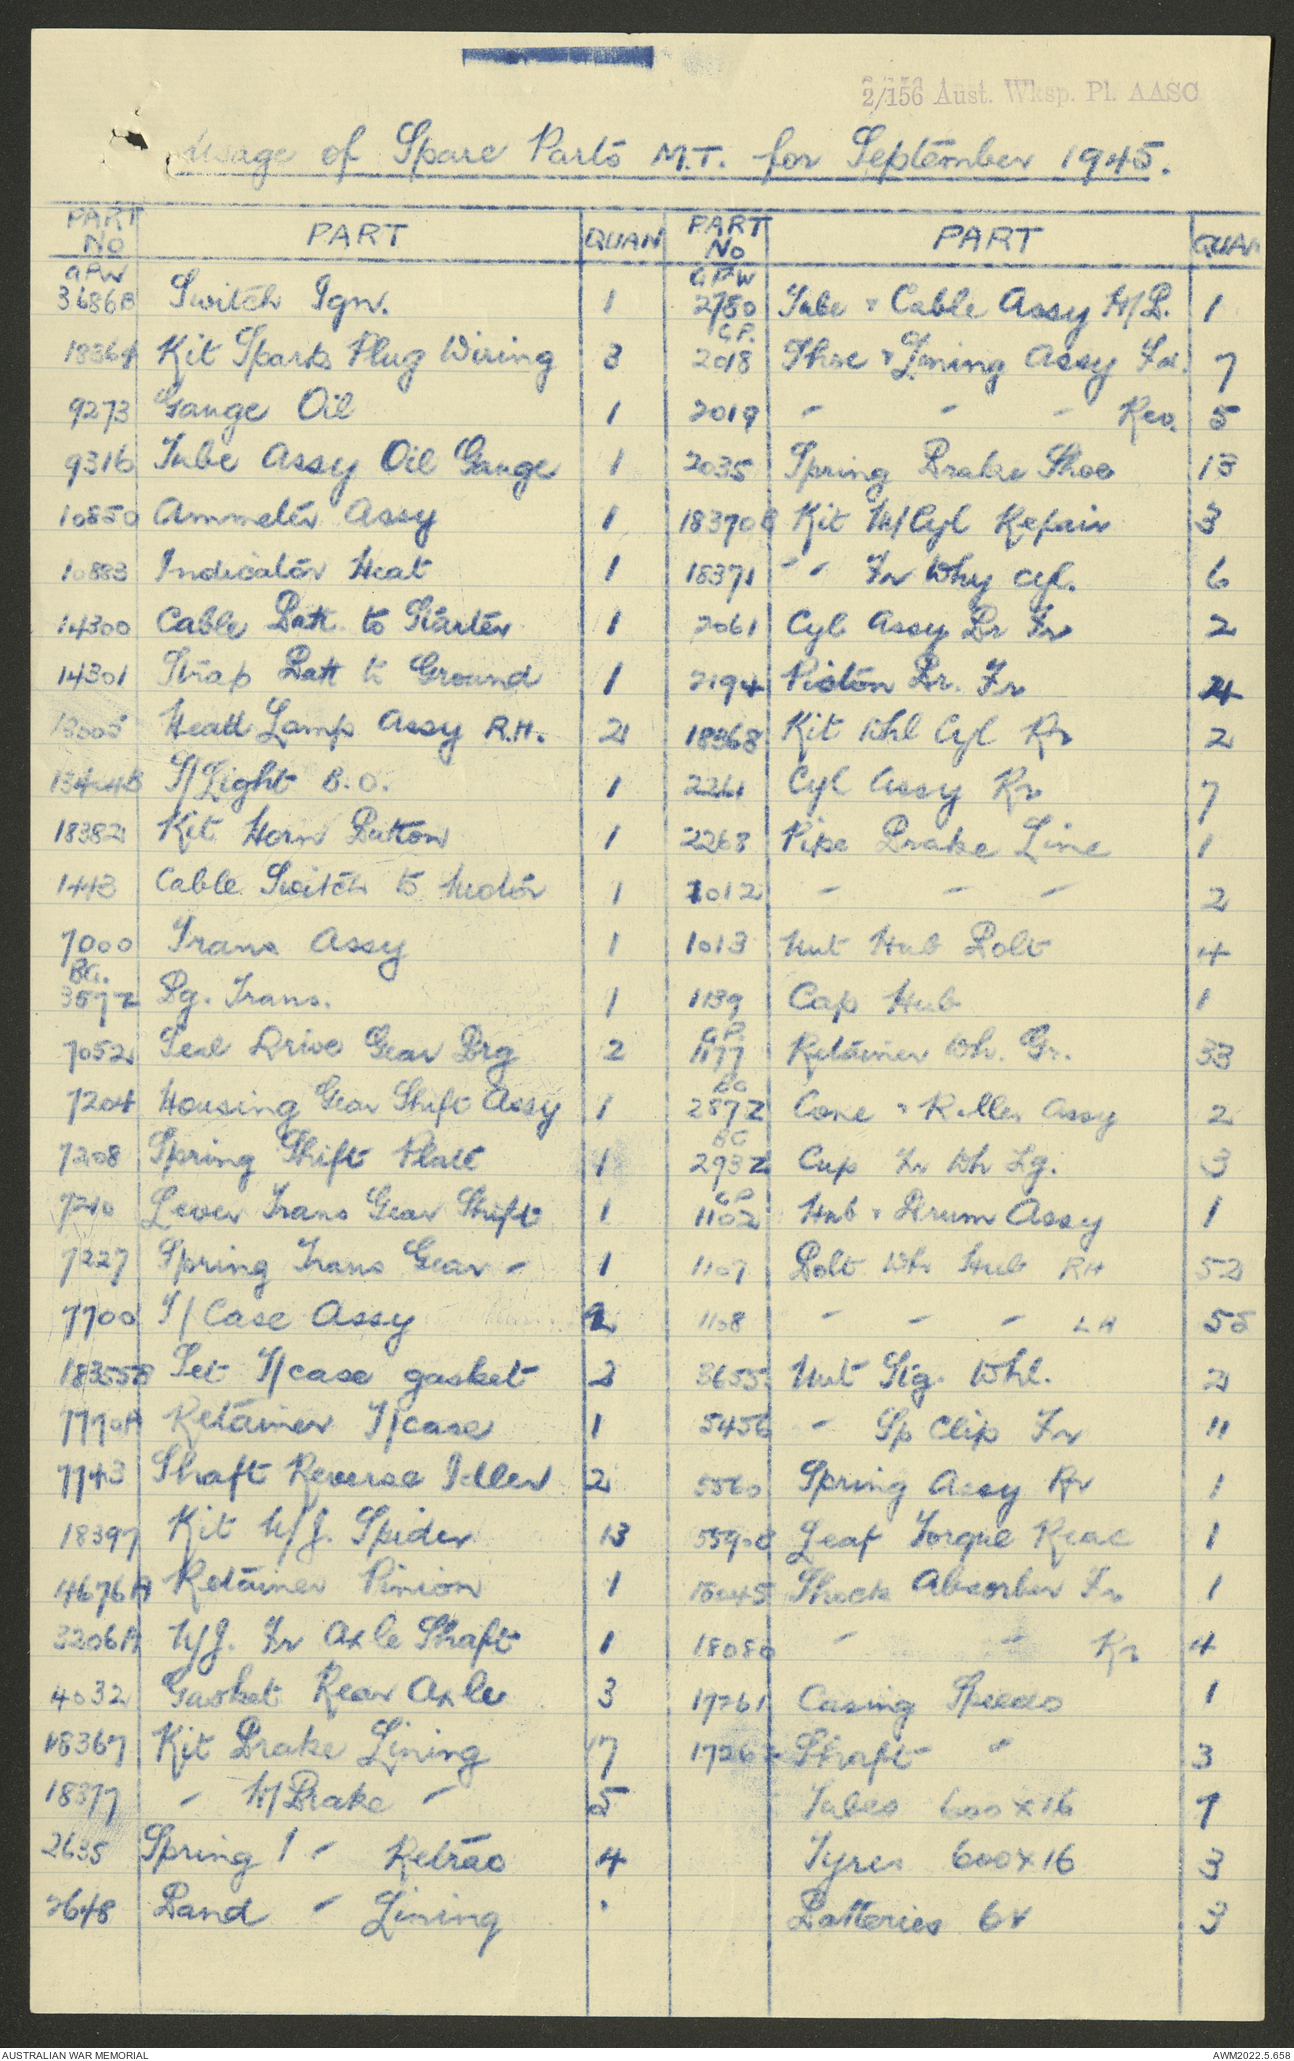 2/156 Aust. Wksp. Pl. AASC
Usage of Spare Parts M.T. for September 1945.
PART No PART QUAN PART No PART QUAN
GPW GPW
3686B Switch Ign. 1 2780 Tube & Cable Assy H/B. 1
GP.
18364 Kit Spark Plug Wiring 3 2018 Shoe & Lining Assy Fr. 7
9273 Gauge Oil 1 2019 " " " Rea. 5
9316 Tube Assy Oil Gauge 1 2035 Spring Brake Shoe 13
10850 Ammeter Assy 1 18370 Kit M/Cyl Repair 3
10883 Indicator Heat 1 18371 " " Fr Why cyl. 6
14300 Cable Batt. to Starter 1 2061 Cyl Assy Br Fr 2
14301 Strap Batt to Ground 1 2194 Piston Br. Fr
13005 Head Lamp Assy R.H. 2 18368 Kit Whl Cyl Rr 2
13448 T/Light B.O. 1 2261 Cyl Assy Rr 7
18382 Kit Horn Button 1 2268 Pipe Brake Line 1
1443 Cable Switch to Motor 1 1012 " " " 2
7000 Trans Assy 1 1013 Nut Hub Bolt 4
BG.
3577Z Bg. Trans. 1 1139 Cap Hub 1
GP.
7052 Seal Drive Gear Brg 2 1177 Retainer Wh. Gr. 33
BG
7204 Housing Gear Shift Assy 1 287Z Cone & Roller Assy 2
BG
7208 Spring Shift Plate 1 293Z Cup Fr Wh Lg. 3
GP
7210 Lever Trans Gear Shift 1 1102 Hub & Drum Assy 1
7227 Spring Trans Gear " 1 1107 Bolt Whl Hub RH 52
7700 T/Case Assy 2 1108 " " " LH 55
18355B Set T/case gasket 2 3655 Nut Stg. Whl. 2
7770A Retainer T/case 1 5456 " Sp Clip Fr 11
7743 Shaft Reverse Idler 2 5560 Spring Assy Rr 1
18397 Kit U/J. Spider 13 Leaf Torque Reac 1
4676A Retainer Pinion 1 18045 Shock Absorber Fr 1
3206A U/J. Fr Axle Shaft 1 18080 " " Rr 4
4032 Gasket Rear Axle 3 17261 Casing Speedo 1
18367 Kit Brake Lining 7 1726 Shaft " 3
18377 " H/Brake " 5 Tubes 600 x 16 7
2635 Spring " Retrac 4 Tyres 600 x 16 3
2648 Band " Lining Batteries 6v 3
AUSTRALIAN WAR MEMORIAL AWM2022.5.658